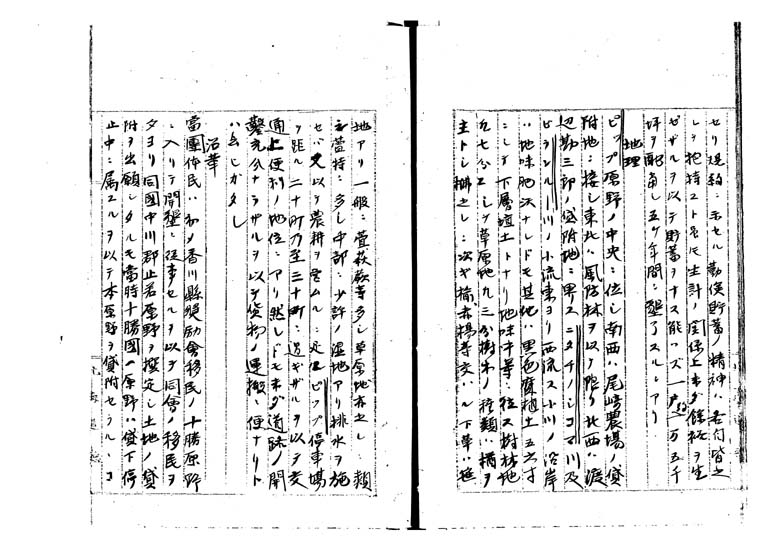 セリ規約ニ示セル勤倹貯蓄ノ精神ハ各自皆之
レヲ抱持スト雖モ生計ノ関係上未ダ余裕ヲ生
ゼザルヲ以テ貯蓄ヲナス能ハズ一戸ニ付一万五千
坪ヲ配当シ五ケ年間ニ墾了スルニアリ
地理
ピップ原野ノ中央ニ位シ南西ハ尾崎農場ノ貸
附地ニ接シ東北ハ風防林ヲ以テ限リ北西ハ渡
辺勘三郎ノ貸附地ニ界ス ニタチノシコマ川及
ビ ノ小流東ヨリ西流ス小川ノ沿岸
ハ地味肥沃ナレドモ其他ハ黒色腐植土五六寸
ニシテ下層埴土トナリ地味中等ニ位ス樹林地
凡七分ニシテ草原地凡三分樹木ノ種類ハ楢ヲ
主トシ柳之レニ次ギ楡赤楊等交ハル下草ハ笹
地アリ一般ニ萱萩蕨等多シ草原地亦之レニ類
シ萱特ニ多シ中部ニ少許ノ湿地アリ排水ヲ施
セバ又以テ農耕ヲ営ムルニ足ルピップ停車場
ヲ距ル二十町乃至三十町ニ過ギザルヲ以テ交
通上便利ノ地位ニアリ然レドモ未ダ道路ノ開
鑿充分ナラザルヲ以テ貨物ノ運搬ニ便ナリト
ハ云ヒガタシ
沿革
当団体民ハ初メ香川県奨励会移民ノ十勝原野
ニ入リテ開墾ニ従事セルヲ以テ同会ノ移民ヲ
タヨリ同国中川郡止若原野ヲ撰定シ土地ノ貸
附ヲ出願シタルモ当時十勝国ノ原野ハ貸下停
止中ニ属スルヲ以テ本原野ヲ貸附セラルヽコ